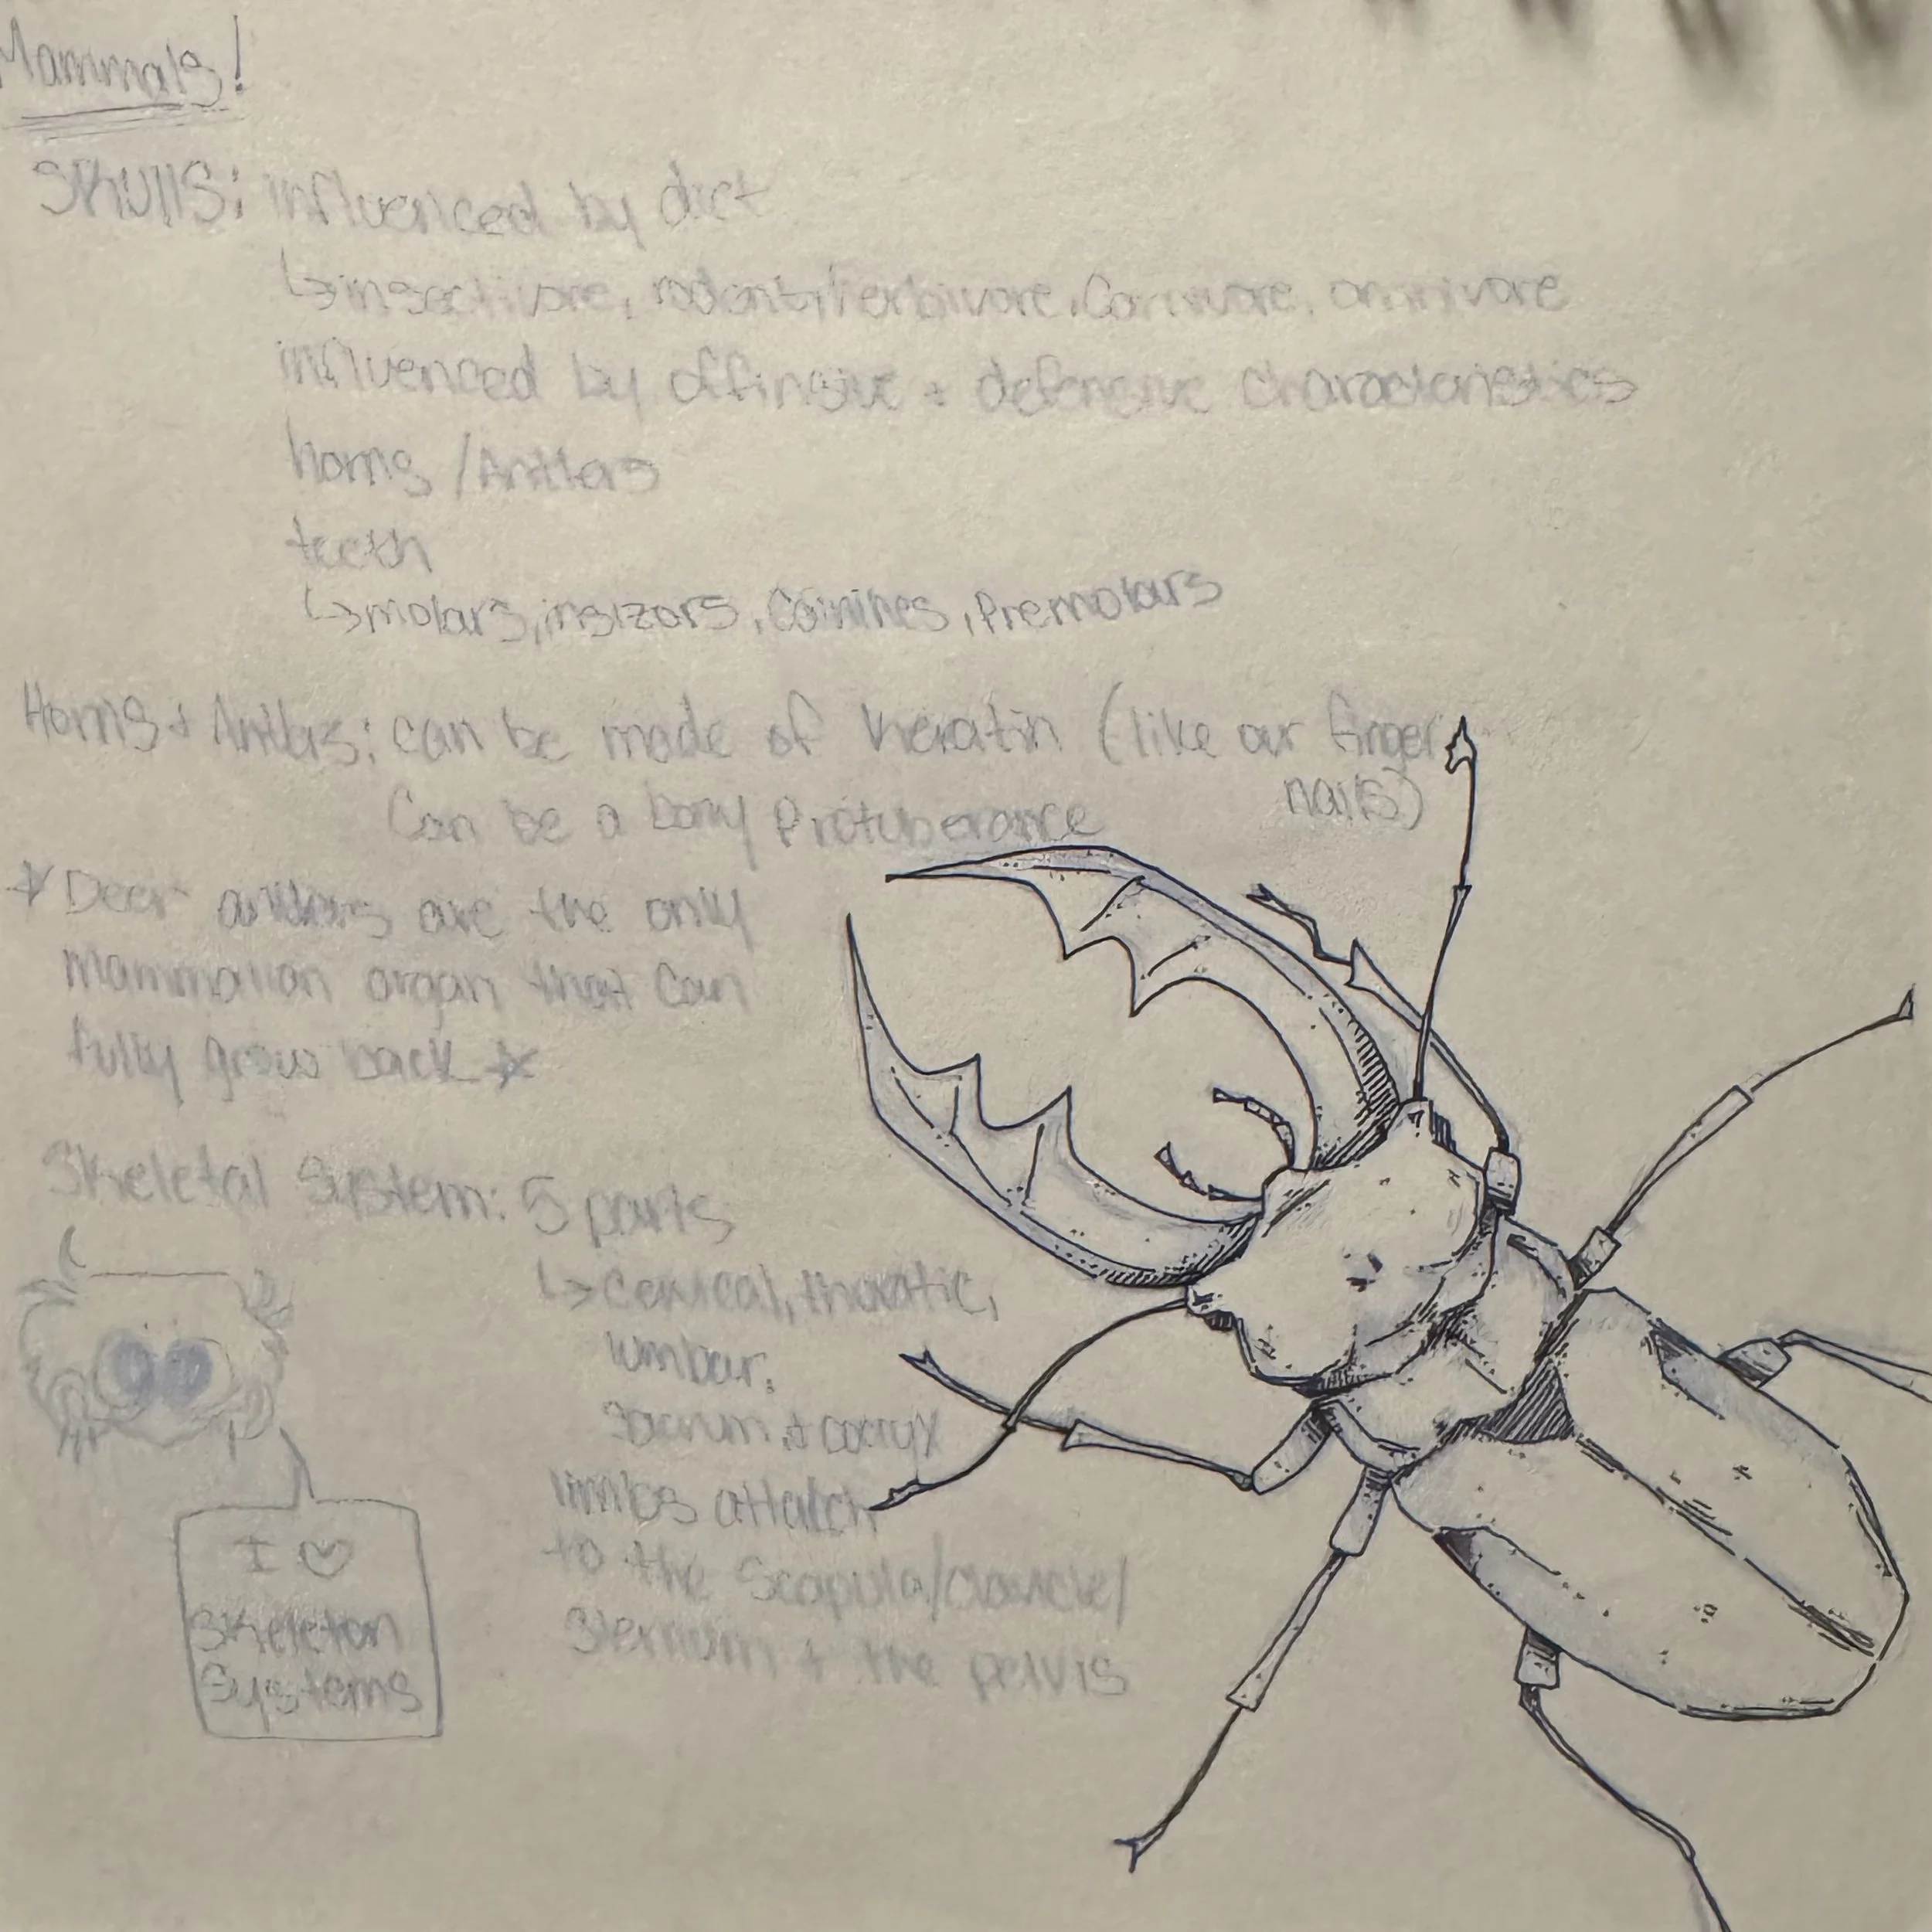 Mammals!
Skulls: influenced by diet
↳insectivore, rodent/herbivore, Carnivore, omnivore
influenced by offinsive + defensive characteristics
horns /Antlers
teeth
↳molars, insizors, Canines, Premolars
Horns + Antlers: can be made of keratin (like our finger
nails)
Can be a bony Protuberance
☆ Deer antlers are the only
mammalian organ that can
fully grow back ☆
Skeletal System: 5 parts
↳ cervical, thoratic,
lumbar,
sacrum, + coccyx
limbs attatch
to the Scapula/clavicle/
Sternum + the pelvis
I ♡
Skeleton
Systems